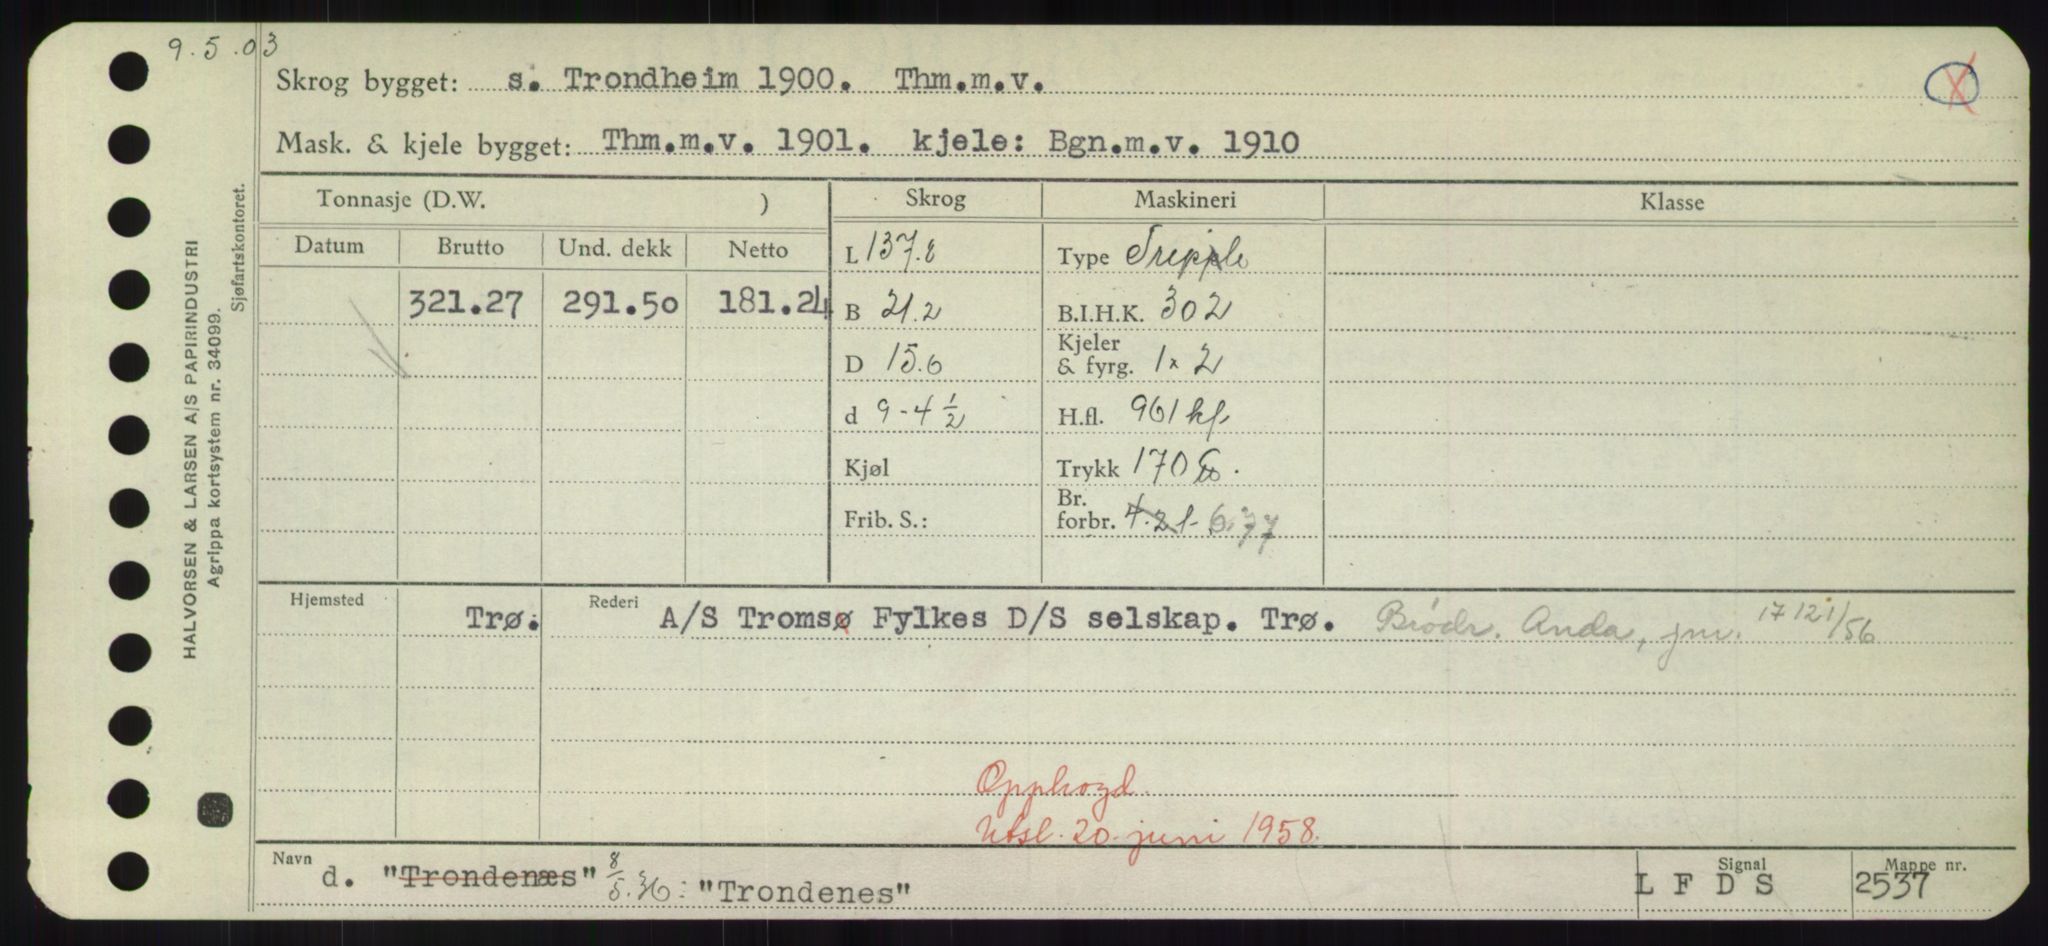 9.5.03
Skrog bygget: s. Trondheim 1900. Thm.m.v.
Mask. & kjele bygget: Thm.m.v. 1901. kjele: Bgn.m.v. 1910
Tonnasje (D.W. ) Skrog Maskineri Klasse
Datum Brutto Und. dekk Netto
321.27 291.50 181.24
L 137.8 Type Tripple
B 21.2 B.I.H.K. 302
D 15.6 Kjeler & fyrg. 1 x 2
d 9-4 1/2 H.fl. 961 kf.
Kjøl Trykk 170 lb.
Frib. S.: Br. forbr. 4.21 6.77
Hjemsted Rederi
Trø. A/S Tromsø Fylkes D/S selskap. Trø. Brødr. Anda, jnr. 17/12 1/56
Opphogd
Utsl. 20. juni 1958.
Navn Signal Mappe nr.
d. "Trondenæs" 8/5.36: "Trondenes" L F D S 2537
HALVORSEN & LARSEN A/S PAPIRINDUSTRI
Agrippa kortsystem nr. 34099.
Sjøfartskontoret.